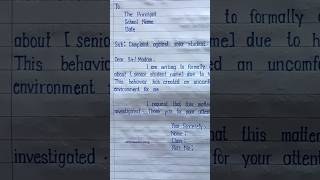 To
The Principal
School Name
Date
Sub: Complaint against senior student.
Dear Sir/Madam,
I am writing to formally
about [senior student name] due to
This behavior has created an uncomfo
environment for me
I request this matter
investigated. Thank you for your atten
Your Sincerely,
Name:
Class:
Roll No:
to formally c
about [senio
due to h
This behav
an uncomf
environmen
this matte
investigated
for your attent